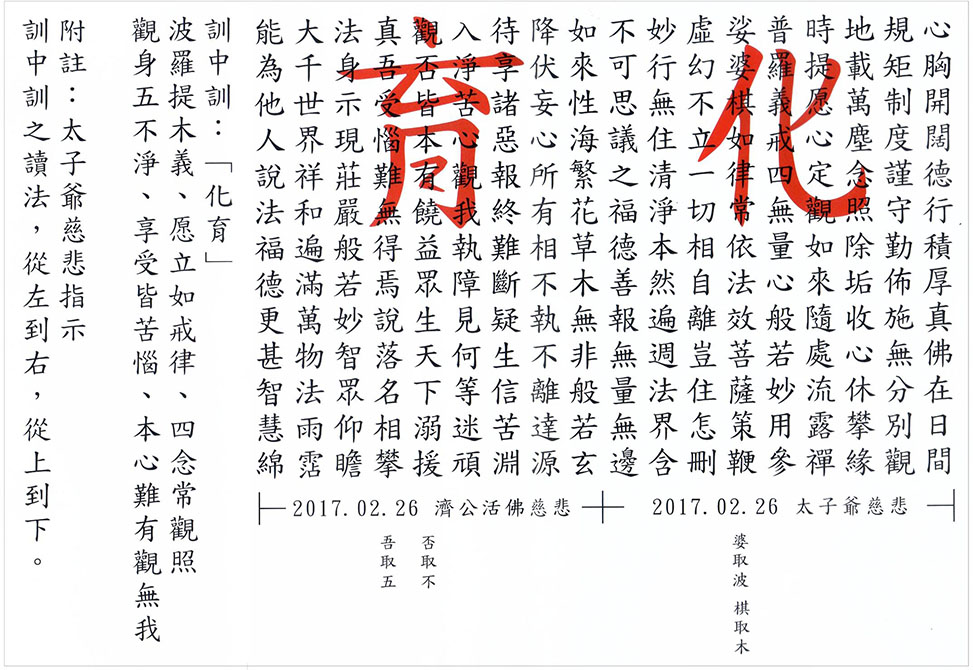 化育
心胸開闊德行積厚真佛在日間
規矩制度謹守勤佈施無分別觀
地載萬塵念照除垢收心休攀緣
時提愿心定觀如來隨處流露禪
普羅義戒四無量心般若妙用參
娑婆棋如律常依法效菩薩策鞭
虛幻不立一切相自離豈住怎刪
妙行無住清淨本然遍週法界含
不可思議之福德善報無量無邊
如來性海繁花草木無非般若玄
降伏妄心所有相不執不離達源
待享諸惡報終難斷疑生信苦淵
入淨苦心觀我執障見何等迷頑
觀否皆本有饒益眾生天下溺援
真吾受惱難無得焉說落名相攀
法身示現莊嚴般若妙智眾仰瞻
大千世界祥和遍滿萬物法雨霑
能為他人說法福德更甚智慧綿
2017.02.26 太子爺慈悲
2017.02.26 濟公活佛慈悲
婆取波 棋取木
否取不
吾取五
訓中訓：「化育」
波羅提木義、愿立如戒律、四念常觀照
觀身五不淨、享受皆苦惱、本心難有觀無我
附註：太子爺慈悲指示
訓中訓之讀法，從左到右，從上到下。